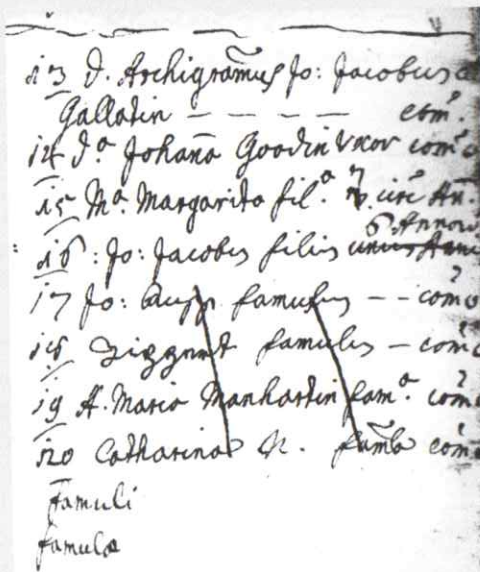 113 D. Archigrāmus Jo: Jacobus
Gallatin – – – – com.
114 D.ª Johaña Goodin Uxor com.
115 M.ª Margarita fil.ª 7. circ. Añ.
6 Annorū
116 : Jo: Jacobus filius
117 Jo: famulus – – com.
118 famulus – com.
119 A. Maria Manhartin fam.ª com.
120 Catharina N. famla com.
famuli
famulæ